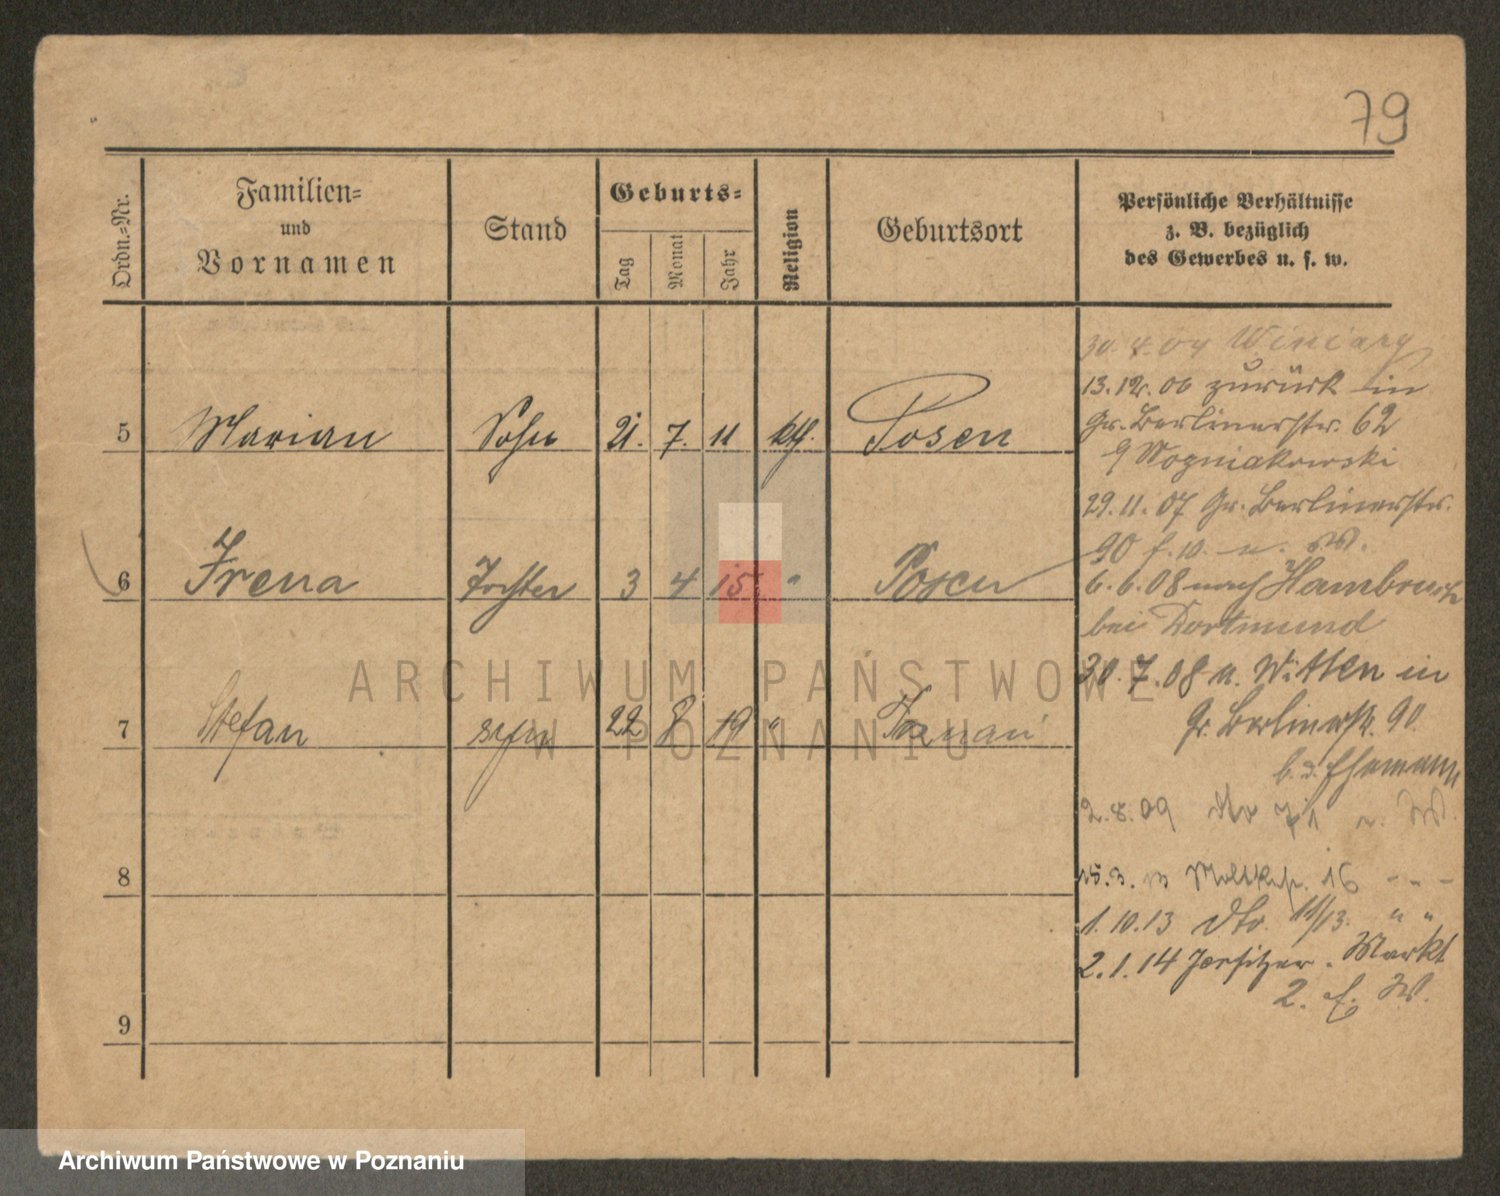 79
Ordn.=Nr.
Familien=
und
Vornamen
Stand
Geburts=
Tag
Monat
Jahr
Religion
Geburtsort
Persönliche Verhältnisse
z. B. bezüglich
des Gewerbes u. s. w.
5 Marian Sohn 21. 7. 11 kth. Posen
6 Irena Tochter 3 4 15 " Posen
7 Stefan syn 22 8 19 " Poznań
8
9
30. 4. 04 Winiary
13. 12. 06 zurück in
Gr. Berlinerstr. 62
Wozniakowski
29. 11. 07 Gr. Berlinerstr.
90 u. W.
6. 6. 08 nach Hambruch
bei Dortmund
30. 7. 08 v. Witten in
Gr. Berlinerstr. 90
b. d. Ehemann
2. 8. 09 dto 71 W.
15. 3. Moltkestr. 16 - - -
1. 10. 13 dto. 11/13. " "
2. 1. 14 Jersitzer. Markt
2. W.
ARCHIWUM PAŃSTWOWE
W POZNANIU
Archiwum Państwowe w Poznaniu